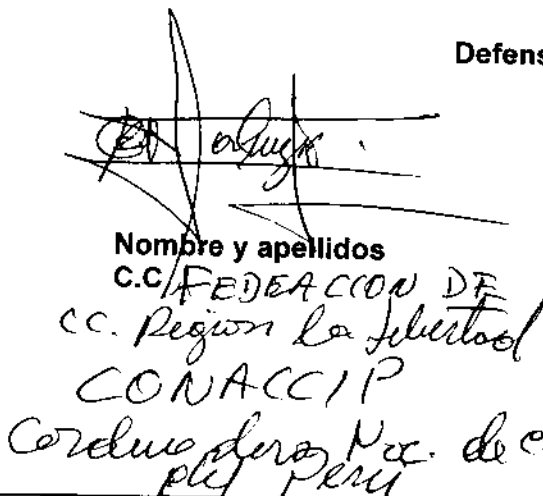 Defens
Nombre y apellidos
C.C. FEDEACCION DE
CC. Region La Libertad
CONACCIP
Nac. de C
del Perú